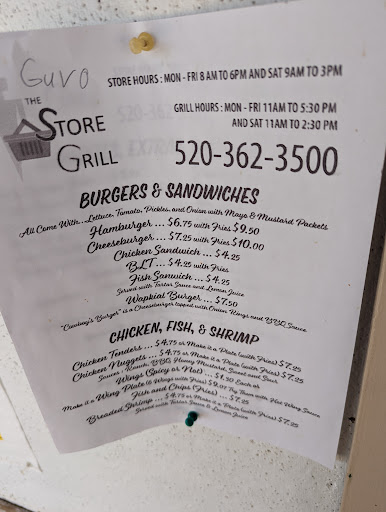 Guvo
THE
STORE
GRILL
STORE HOURS : MON - FRI 8 AM TO 6PM AND SAT 9AM TO 3PM
GRILL HOURS : MON - FRI 11AM TO 5:30 PM
AND SAT 11AM TO 2:30 PM
520-362-3500
BURGERS & SANDWICHES
All Come With.. Lettuce, Tomato, Pickles, and Onion with Mayo & Mustard Packets
Hamburger ... $6.75 with Fries $9.50
Cheeseburger ... $7.25 with Fries $10.00
Chicken Sandwich ... $4.25
BLT ... $4.25 with Fries
Fish Sanwich ... $4.25
Served with Tartar Sauce and Lemon Juice
Wapkial Burger ... $7.50
"Cowboy's Burger" is a Cheeseburger topped with Onion Rings and BBQ Sauce
CHICKEN, FISH, & SHRIMP
Chicken Tenders ... $4.75 or Make it a Plate (with Fries) $7.25
Chicken Nuggets ... $4.75 or Make it a Plate (with Fries) $7.25
Sauces : Ranch, BBQ, Honey Mustard, Sweet and Sour
Wings (Spicy or Not) ... $1.50 Each or
Make it a Wing Plate (6 Wings with Fries) $9.07 Try Them with Hot Wing Sauce
Fish and Chips (Fries) ... $7.25
Breaded Shrimp ... $4.75 or Make it a Plate (with Fries) $7.25
Served with Tartar Sauce & Lemon Juice